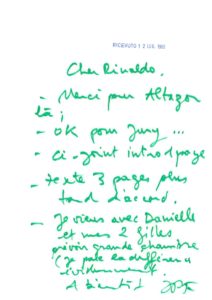 RICEVUTO 12 LUG. 1993
Cher Rinaldo,
- Merci pour Altagor
là ;
- OK pour Jury ...
- ci-joint introd page
- texte 3 pages plus
tard d'accord.
- Je viens avec Danielle
et mes 2 filles
prévoir grande chambre
(je paie la différence
évidemment.
A bientôt